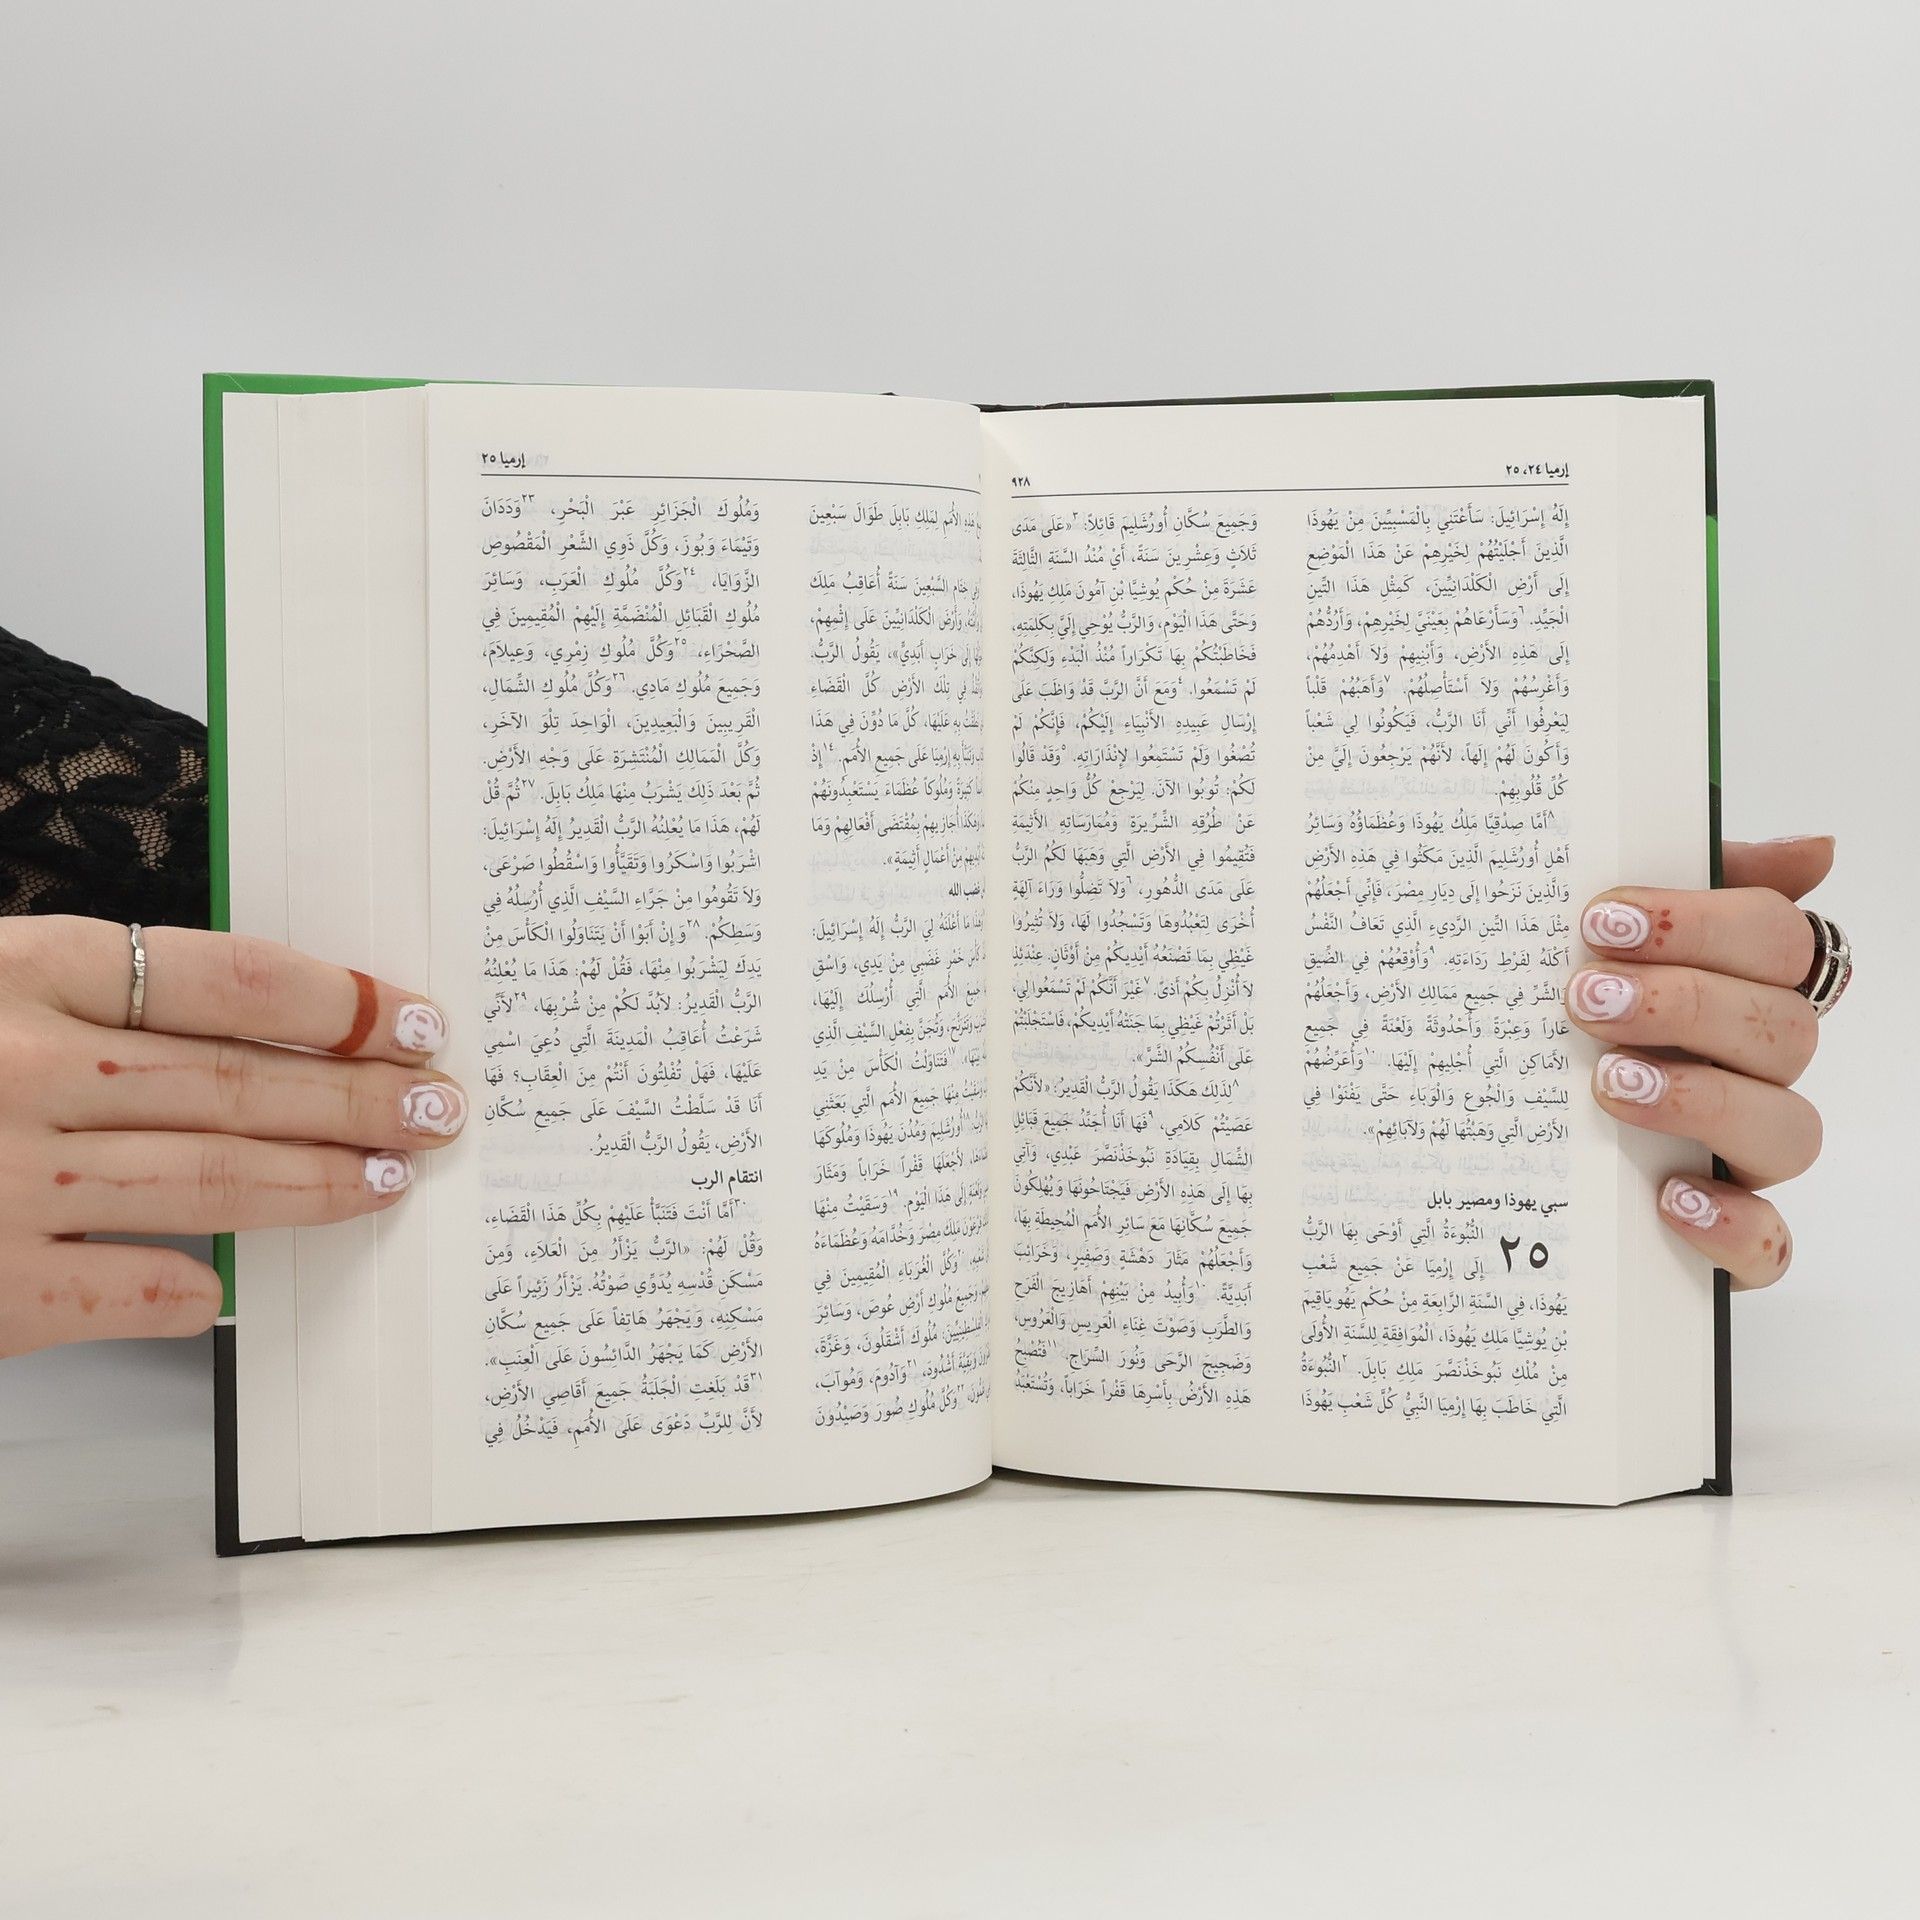 إرميا ٢٤، ٢٥
٩٢٨
إِلَهُ إِسْرَائِيلَ: سَأَعْتَنِي بِالْمَسْبِيِّينَ مِنْ يَهُوذَا
الَّذِينَ أَجْلَيْتُهُمْ لِخَيْرِهِمْ عَنْ هَذَا الْمَوْضِعِ
إِلَى أَرْضِ الْكَلْدَانِيِّينَ، كَمِثْلِ هَذَا التِّينِ
الْجَيِّدِ. ٦وَسَأَرْعَاهُمْ بِعَيْنَيَّ لِخَيْرِهِمْ، وَأَرُدُّهُمْ
إِلَى هَذِهِ الأَرْضِ، وَأَبْنِيهِمْ وَلاَ أَهْدِمُهُمْ،
وَأَغْرِسُهُمْ وَلاَ أَسْتَأْصِلُهُمْ. ٧وَأَهَبُهُمْ قَلْباً
لِيَعْرِفُوا أَنِّي أَنَا الرَّبُّ، فَيَكُونُوا لِي شَعْباً
وَأَكُونَ لَهُمْ إِلَهاً، لأَنَّهُمْ يَرْجِعُونَ إِلَيَّ مِنْ
كُلِّ قُلُوبِهِمْ.
٨أَمَّا صِدْقِيَّا مَلِكُ يَهُوذَا وَعُظَمَاؤُهُ وَسَائِرُ
أَهْلِ أُورُشَلِيمَ الَّذِينَ مَكَثُوا فِي هَذِهِ الأَرْضِ
وَالَّذِينَ نَزَحُوا إِلَى دِيَارِ مِصْرَ، فَإِنِّي أَجْعَلُهُمْ
مِثْلَ هَذَا التِّينِ الرَّدِيءِ الَّذِي تَعَافُ النَّفْسُ
أَكْلَهُ لِفَرْطِ رَدَاءَتِهِ. ٩وَأُوْقِعُهُمْ فِي الضِّيقِ
وَالشَّرِّ فِي جَمِيعِ مَمَالِكِ الأَرْضِ، وَأَجْعَلُهُمْ
عَاراً وَعِبْرَةً وَأُحْدُوثَةً وَلَعْنَةً فِي جَمِيعِ
الأَمَاكِنِ الَّتِي أُجْلِيهِمْ إِلَيْهَا. ١٠وَأُعَرِّضُهُمْ
لِلسَّيْفِ وَالْجُوعِ وَالْوَبَاءِ حَتَّى يَفْنَوْا فِي
الأَرْضِ الَّتِي وَهَبْتُهَا لَهُمْ وَلآبَائِهِمْ».
سبي يهوذا ومصير بابل
٢٥ النُّبُوءَةُ الَّتِي أَوْحَى بِهَا الرَّبُّ
إِلَى إِرْمِيَا عَنْ جَمِيعِ شَعْبِ
يَهُوذَا، فِي السَّنَةِ الرَّابِعَةِ مِنْ حُكْمِ يَهُويَاقِيمَ
بْنِ يُوشِيَّا مَلِكِ يَهُوذَا، الْمُوَافِقَةِ لِلسَّنَةِ الأُولَى
مِنْ مُلْكِ نَبُوخَذْنَصَّرَ مَلِكِ بَابِلَ. ٢النُّبُوءَةُ
الَّتِي خَاطَبَ بِهَا إِرْمِيَا النَّبِيُّ كُلَّ شَعْبِ يَهُوذَا
وَجَمِيعَ سُكَّانِ أُورُشَلِيمَ قَائِلاً: ٣«عَلَى مَدَى
ثَلاَثٍ وَعِشْرِينَ سَنَةً، أَيْ مُنْذُ السَّنَةِ الثَّالِثَةَ
عَشَرَةَ مِنْ حُكْمِ يُوشِيَّا بْنِ آمُونَ مَلِكِ يَهُوذَا،
وَحَتَّى هَذَا الْيَوْمِ، وَالرَّبُّ يُوْحِي إِلَيَّ بِكَلِمَتِهِ،
فَخَاطَبْتُكُمْ بِهَا تَكْرَاراً مُنْذُ الْبَدْءِ وَلَكِنَّكُمْ
لَمْ تَسْمَعُوا. ٤وَمَعَ أَنَّ الرَّبَّ قَدْ وَاظَبَ عَلَى
إِرْسَالِ عَبِيدِهِ الأَنْبِيَاءِ إِلَيْكُمْ، فَإِنَّكُمْ لَمْ
تُصْغُوا وَلَمْ تَسْتَمِعُوا لإِنْذَارَاتِهِ. ٥وَقَدْ قَالُوا
لَكُمْ: تُوبُوا الآنَ. لِيَرْجِعْ كُلُّ وَاحِدٍ مِنْكُمْ
عَنْ طُرُقِهِ الشِّرِّيرَةِ وَمُمَارَسَاتِهِ الأَثِيمَةِ
فَتُقِيمُوا فِي الأَرْضِ الَّتِي وَهَبَهَا لَكُمُ الرَّبُّ
عَلَى مَدَى الدُّهُورِ. ٦وَلاَ تَضِلُّوا وَرَاءَ آلِهَةٍ
أُخْرَى لِتَعْبُدُوهَا وَتَسْجُدُوا لَهَا، وَلاَ تُثِيرُوا
غَيْظِي بِمَا تَصْنَعُهُ أَيْدِيكُمْ مِنْ أَوْثَانٍ. عِنْدَئِذٍ
لاَ أُنْزِلُ بِكُمْ أَذىً. ٧غَيْرَ أَنَّكُمْ لَمْ تَسْمَعُوا لِي،
بَلْ أَثَرْتُمْ غَيْظِي بِمَا جَنَتْهُ أَيْدِيكُمْ، فَاسْتَجْلَبْتُمْ
عَلَى أَنْفُسِكُمُ الشَّرَّ».
٨لِذَلِكَ هَكَذَا يَقُولُ الرَّبُّ الْقَدِيرُ: «لأَنَّكُمْ
عَصَيْتُمْ كَلاَمِي، ٩فَهَا أَنَا أُجَنِّدُ جَمِيعَ قَبَائِلِ
الشِّمَالِ بِقِيَادَةِ نَبُوخَذْنَصَّرَ عَبْدِي، وَآتِي
بِهَا إِلَى هَذِهِ الأَرْضِ فَيَجْتَاحُونَهَا وَيُهْلِكُونَ
جَمِيعَ سُكَّانِهَا مَعَ سَائِرِ الأُمَمِ الْمُحِيطَةِ بِهَا،
وَأَجْعَلُهُمْ مَثَارَ دَهْشَةٍ وَصَفِيرٍ، وَخَرَائِبَ
أَبَدِيَّةً. ١٠وَأُبِيدُ مِنْ بَيْنِهِمْ أَهَازِيجَ الْفَرَحِ
وَالطَّرَبِ وَصَوْتَ غِنَاءِ الْعَرِيسِ وَالْعَرُوسِ،
وَضَجِيجَ الرَّحَى وَنُورَ السِّرَاجِ. ١١فَتُصْبِحُ
هَذِهِ الأَرْضُ بِأَسْرِهَا قَفْراً خَرَاباً، وَتُسْتَعْبَدُ
إرميا ٢٥
هَذِهِ الأُمَمِ لِمَلِكِ بَابِلَ طَوَالَ سَبْعِينَ
خِتَامِ السَّبْعِينَ سَنَةً أُعَاقِبُ مَلِكَ
وَأَرْضَ الْكَلْدَانِيِّينَ عَلَى إِثْمِهِمْ،
إِلَى خَرَابٍ أَبَدِيٍّ»، يَقُولُ الرَّبُّ.
فِي تِلْكَ الأَرْضِ كُلَّ الْقَضَاءِ
بِهِ عَلَيْهَا، كُلَّ مَا دُوِّنَ فِي هَذَا
بِهِ إِرْمِيَا عَلَى جَمِيعِ الأُمَمِ. ١٤إِذْ
كَثِيرَةً وَمُلُوكاً عُظَمَاءَ يَسْتَعْبِدُونَهُمْ
أُجَازِيهِمْ بِمُقْتَضَى أَفْعَالِهِمْ وَمَا
مِنْ أَعْمَالٍ أَثِيمَةٍ».
غضب الله
مَا أَعْلَنَهُ لِيَ الرَّبُّ إِلَهُ إِسْرَائِيلَ:
كَأْسَ خَمْرِ غَضَبِي مِنْ يَدِي، وَاسْقِ
جَمِيعَ الأُمَمِ الَّتِي أُرْسِلُكَ إِلَيْهَا،
وَتَتَرَنَّحَ، وَتُجَنَّ بِفِعْلِ السَّيْفِ الَّذِي
١٧فَتَنَاوَلْتُ الْكَأْسَ مِنْ يَدِ
مِنْهَا جَمِيعَ الأُمَمِ الَّتِي بَعَثَنِي
أُورُشَلِيمَ وَمُدُنَ يَهُوذَا وَمُلُوكَهَا
لأَجْعَلَهَا قَفْراً خَرَاباً وَمَثَارَ
إِلَى هَذَا الْيَوْمِ. ١٩وَسَقَيْتُ مِنْهَا
مَلِكَ مِصْرَ وَخُدَّامَهُ وَعُظَمَاءَهُ
٢٠وَكُلَّ الْغُرَبَاءِ الْمُقِيمِينَ فِي
وَجَمِيعَ مُلُوكِ أَرْضِ عُوصَ، وَسَائِرَ
مُلُوكَ أَشْقَلُونَ، وَغَزَّةَ،
وَبَقِيَّةَ أَشْدُودَ، ٢١وَأَدُومَ، وَمُوآبَ،
٢٢وَكُلَّ مُلُوكِ صُورَ وَصَيْدُونَ
وَمُلُوكَ الْجَزَائِرِ عَبْرَ الْبَحْرِ، ٢٣وَدَدَانَ
وَتَيْمَاءَ وَبُوزَ، وَكُلَّ ذَوِي الشَّعْرِ الْمَقْصُوصِ
الزَّوَايَا، ٢٤وَكُلَّ مُلُوكِ الْعَرَبِ، وَسَائِرَ
مُلُوكِ الْقَبَائِلِ الْمُنْضَمَّةِ إِلَيْهِمْ الْمُقِيمِينَ فِي
الصَّحْرَاءِ، ٢٥وَكُلَّ مُلُوكِ زِمْرِي، وَعِيلاَمَ،
وَجَمِيعَ مُلُوكِ مَادِي. ٢٦وَكُلَّ مُلُوكِ الشِّمَالِ،
الْقَرِيبِينَ وَالْبَعِيدِينَ، الْوَاحِدَ تِلْوَ الآخَرِ،
وَكُلَّ الْمَمَالِكِ الْمُنْتَشِرَةِ عَلَى وَجْهِ الأَرْضِ.
ثُمَّ بَعْدَ ذَلِكَ يَشْرَبُ مِنْهَا مَلِكُ بَابِلَ. ٢٧ثُمَّ قُلْ
لَهُمْ، هَذَا مَا يُعْلِنُهُ الرَّبُّ الْقَدِيرُ إِلَهُ إِسْرَائِيلَ:
اشْرَبُوا وَاسْكَرُوا وَتَقَيَّأُوا وَاسْقُطُوا صَرْعَى،
وَلاَ تَقُومُوا مِنْ جَرَّاءِ السَّيْفِ الَّذِي أُرْسِلُهُ فِي
وَسَطِكُمْ. ٢٨وَإِنْ أَبَوْا أَنْ يَتَنَاوَلُوا الْكَأْسَ مِنْ
يَدِكَ لِيَشْرَبُوا مِنْهَا، فَقُلْ لَهُمْ: هَذَا مَا يُعْلِنُهُ
الرَّبُّ الْقَدِيرُ: لاَبُدَّ لَكُمْ مِنْ شُرْبِهَا، ٢٩لأَنِّي
شَرَعْتُ أُعَاقِبُ الْمَدِينَةَ الَّتِي دُعِيَ اسْمِي
عَلَيْهَا، فَهَلْ تُفْلِتُونَ أَنْتُمْ مِنَ الْعِقَابِ؟ فَهَا
أَنَا قَدْ سَلَّطْتُ السَّيْفَ عَلَى جَمِيعِ سُكَّانِ
الأَرْضِ، يَقُولُ الرَّبُّ الْقَدِيرُ.
انتقام الرب
٣٠أَمَّا أَنْتَ فَتَنَبَّأْ عَلَيْهِمْ بِكُلِّ هَذَا الْقَضَاءِ،
وَقُلْ لَهُمْ: «الرَّبُّ يَزْأَرُ مِنَ الْعَلاَءِ، وَمِنَ
مَسْكَنِ قُدْسِهِ يُدَوِّي صَوْتُهُ. يَزْأَرُ زَئِيراً عَلَى
مَسْكِنِهِ، وَيَجْهَرُ هَاتِفاً عَلَى جَمِيعِ سُكَّانِ
الأَرْضِ كَمَا يَجْهَرُ الدَّائِسُونَ عَلَى الْعِنَبِ».
٣١قَدْ بَلَغَتِ الْجَلَبَةُ جَمِيعَ أَقَاصِي الأَرْضِ،
لأَنَّ لِلرَّبِّ دَعْوَى عَلَى الأُمَمِ، فَيَدْخُلُ فِي